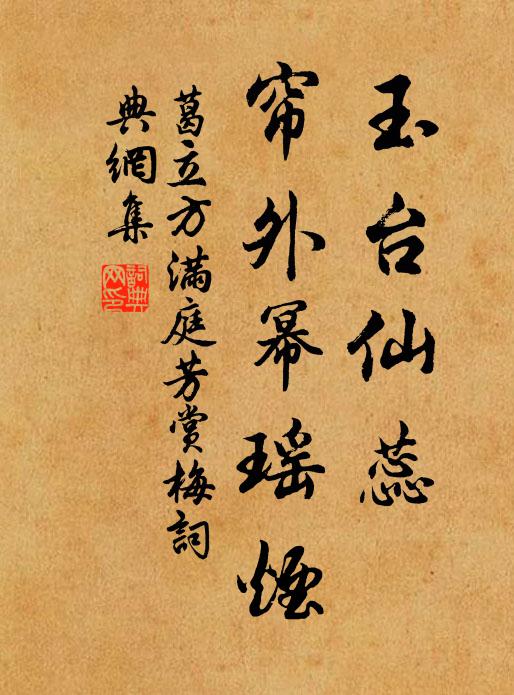 玉台仙蕊
帘外幂瑶煙
葛立方满庭芳赏梅詞
典網集
詞典網印